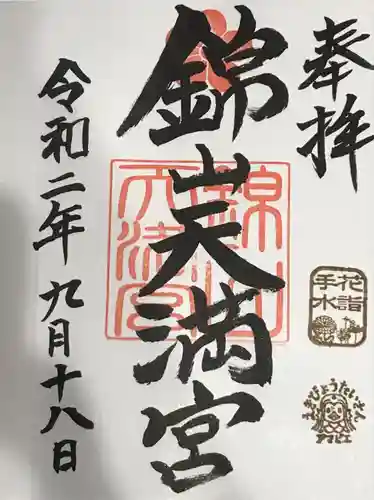 奉拝
花詣
手水
錦山天満宮
錦山天満宮
令和二年九月十八日